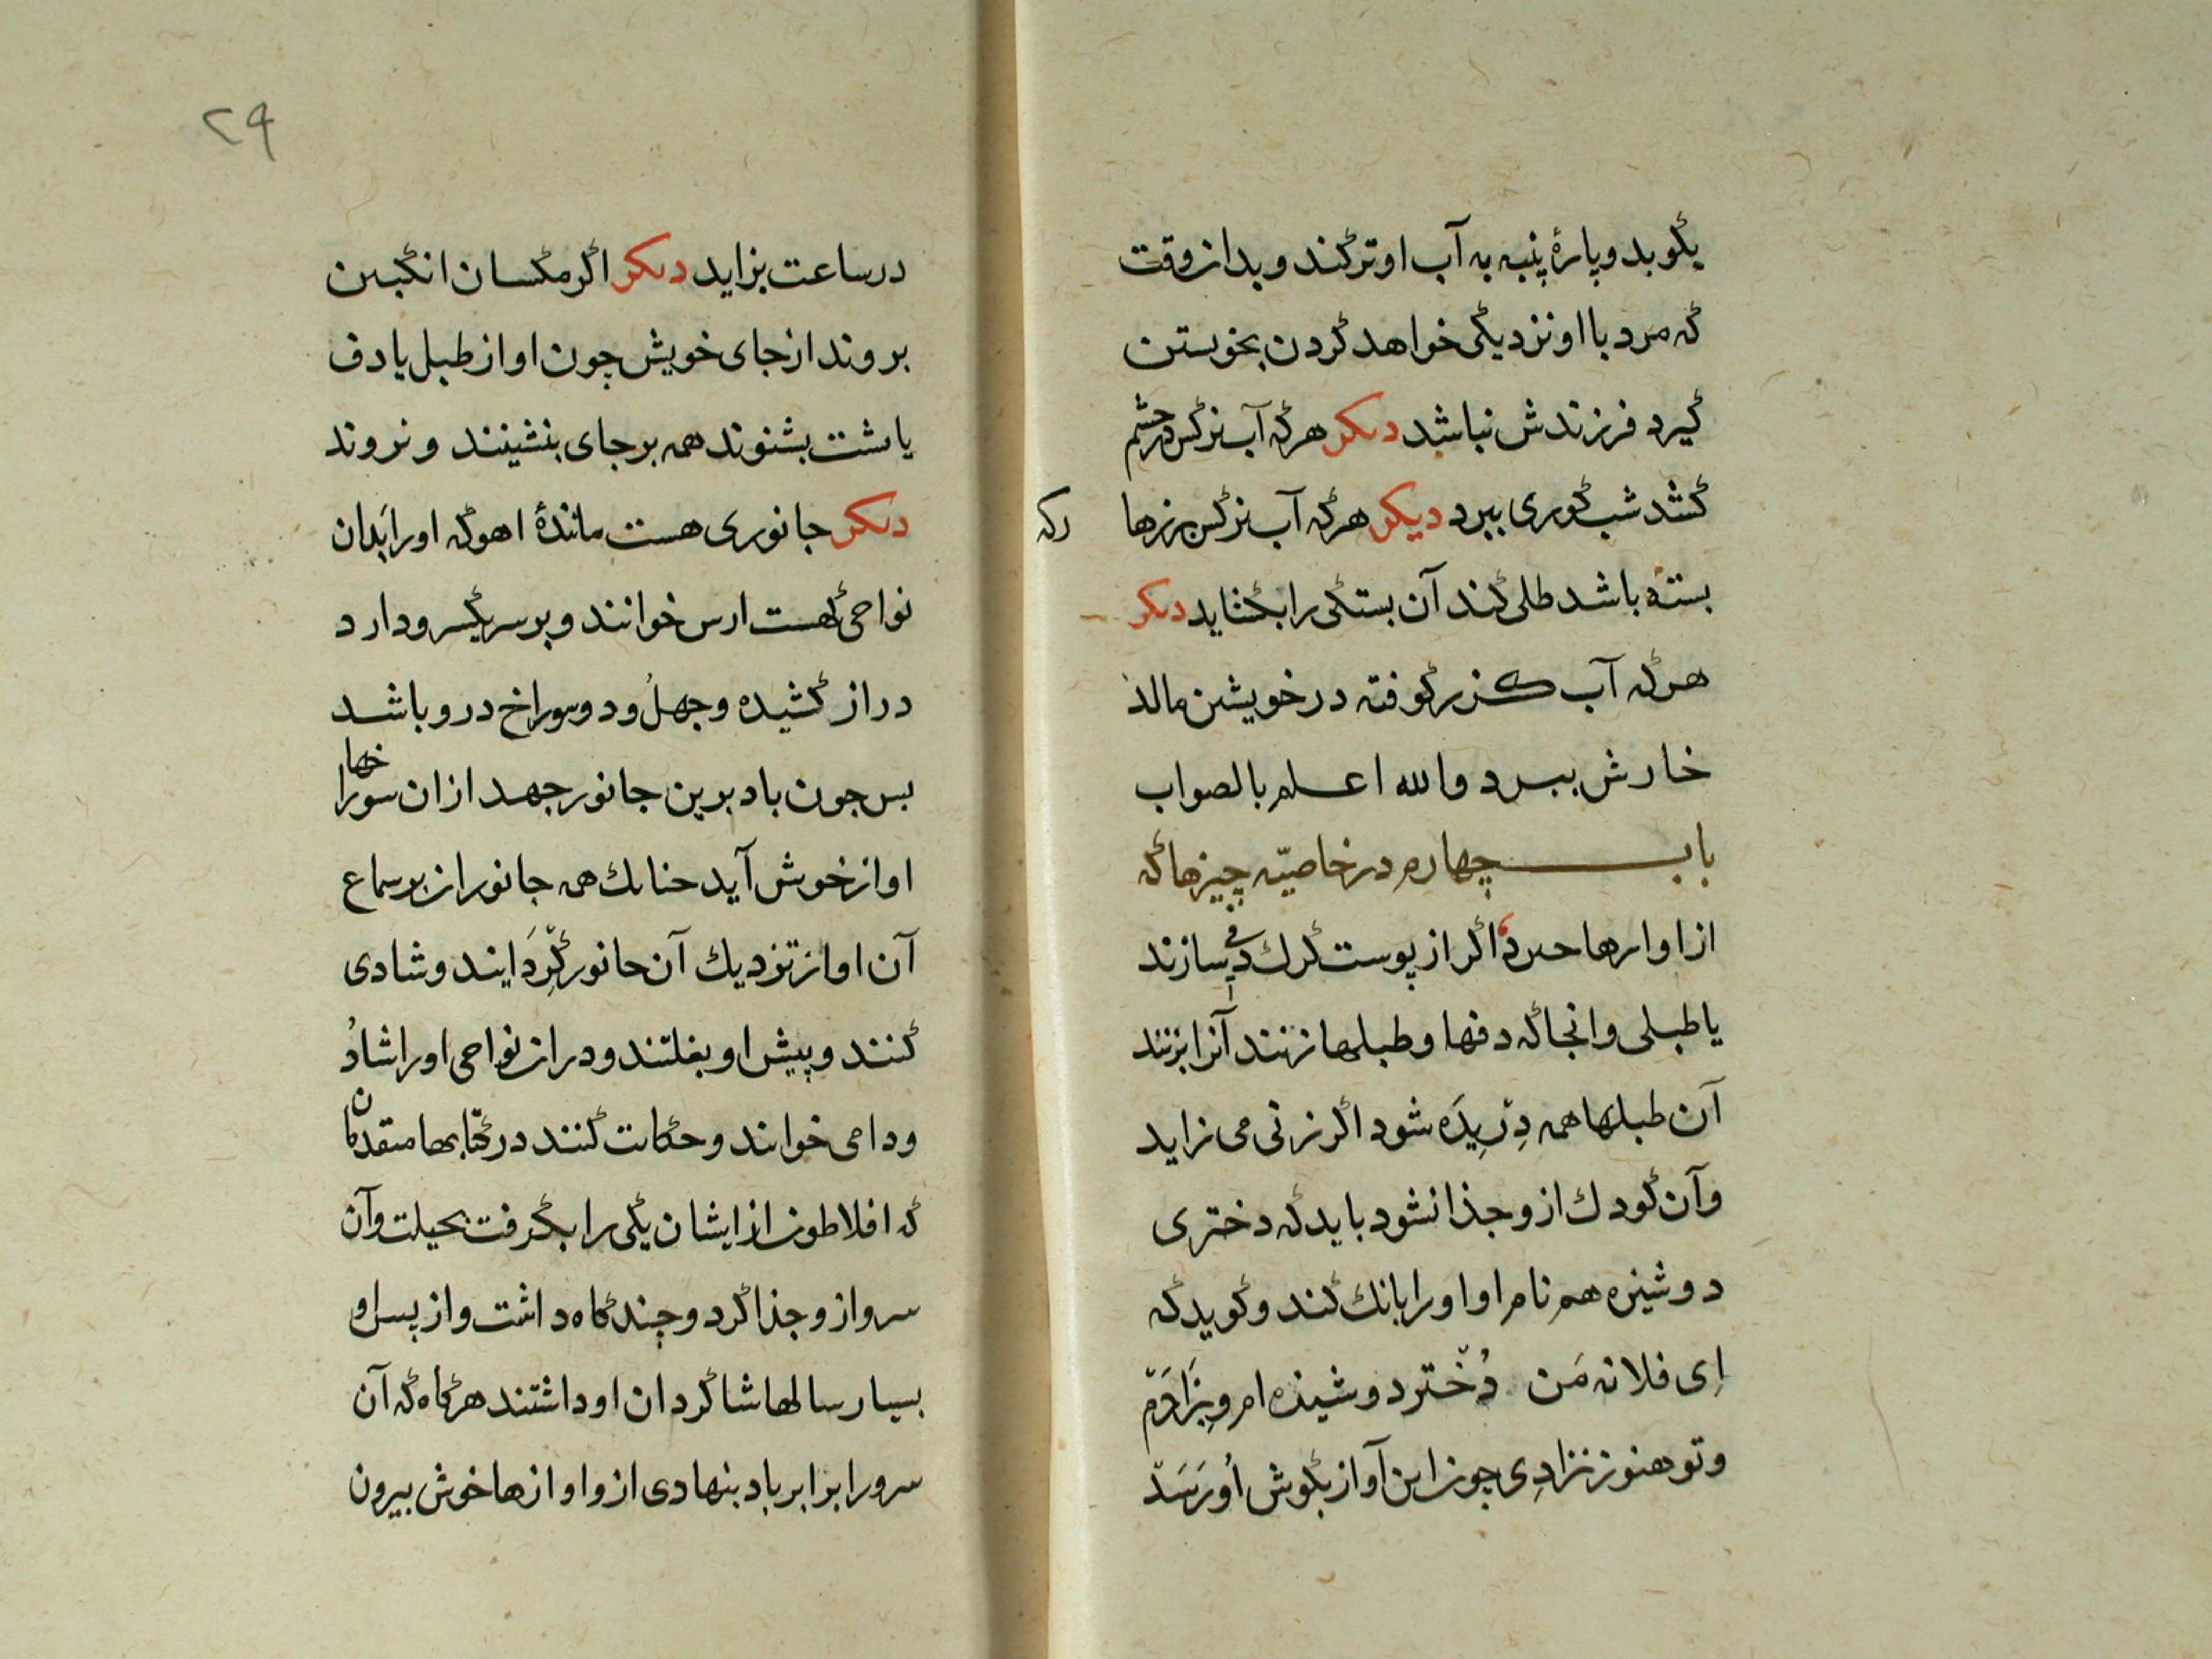 بکوبد و پارهٔ پنبه به آب او تر کند و بدان وقت
که مرد با او نزدیکی خواهد کردن بخویشتن
گیرد فرزندش نباشد دیکر هرکه آب نرکس در چشم
کشد شب کوری ببرد دیکر هرکه آب نرکس بر زها رکه
بسته باشد طلی کند آن بستکی را بکشاید دیکر
هرکه آب کزر کوفته در خویشتن مالذ
خارش ببرد والله اعلم بالصواب
باب چهارم در خاصیّه چیزها که
از اوازها خیزد اکر از پوست کرک دفی سازند
یا طبلی و انجا که دفها و طبلها زنند آنرا بزنند
آن طبلها همه دِرِّیدَه شود اکر زنی می زاید
وآن کودک از و جذا نشود باید که دختری
دوشیزه هم نام او اورا بانک کند و کوید که
اِی فلانه مَن دُخّتر دوشیزه ام و بِزَادَم
و تو هنوز نزادِی چون این آواز بکوش اُو رَسَدْ
۲۹
در ساعت بزاید دیکر اکر مکسان انکبین
بروند از جای خویش چون اواز طبل یا دف
یا شت بشنوند همه بر جای بنشینند و نروند
دیکر جانوری هست مانندهٔ اهو که اورا بَدان
نواحی کهست ارس خوانند و بر سر یکسرو دارد
دراز کشیده و چهل و دو سوراخ درو باشد
بس چون باد برین جانور جهد ازان سوراخها
اواز خوش آید جنانک همه جانوران بر سماع
آن اواز نزدیك آن جانور کِرّدَ ایند و شادی
کنند و پیش او بغلتند و دران نواحی اورا شادُ
ودامی خوانند و حکایت کنند در کتابها متقدمان
که افلاطون از ایشان یکی را بکرفت بحیلت وآن
سرو از و جذا کرد و چندکاه داشت و از پس او
بسیار سالها شاکردان او داشتند هرکاه که آن
سرو را برابر باد بنهادی ازو اوازها خوش بیرون